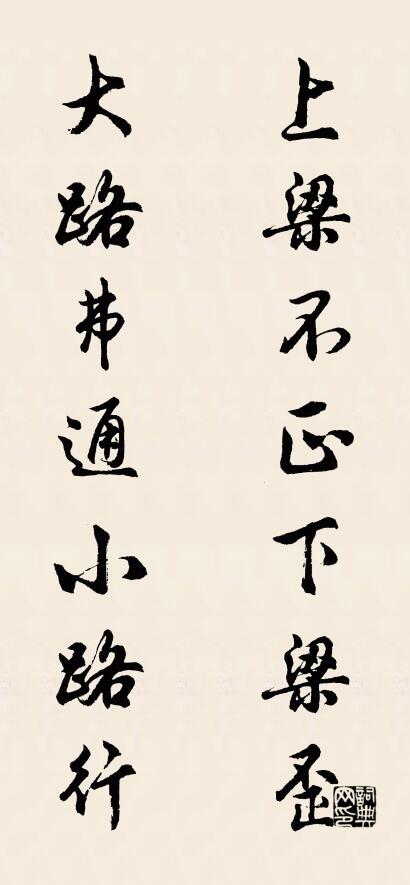 上梁不正下梁歪
大路弗通小路行
詞典网印